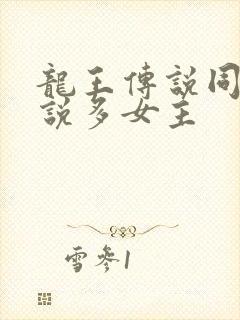 龍王傳說同
說多女主
雪參1